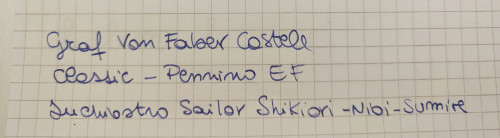 Graf Von Faber Castell
Classic - Pennino EF
Inchiostro Sailor Shikiori - Nioi - Sumire